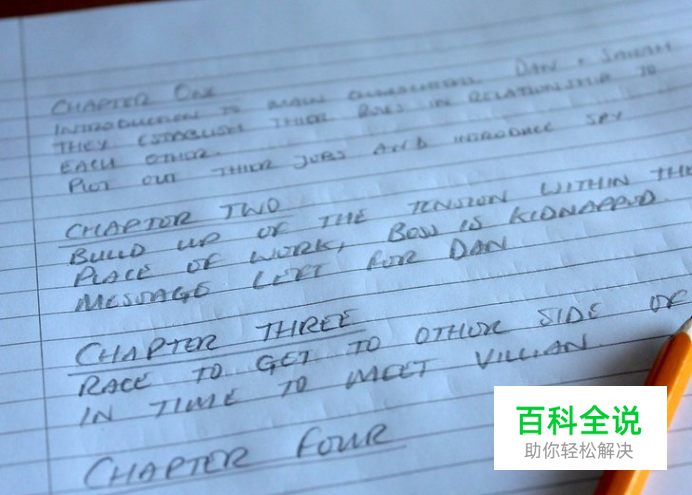 CHAPTER ONE
INTRODUCTION TO MAIN CHARACTERS DAN + SARAH
THEY ESTABLISH THIER ROLES IN RELATIONSHIP TO
EACH OTHER.
PLOT OUT THIER JOBS AND INTRODUCE SPY
CHAPTER TWO
BUILD UP OF THE TENSION WITHIN THE
PLACE OF WORK, BOSS IS KIDNAPPED.
MESSAGE LEFT FOR DAN
CHAPTER THREE
RACE TO GET TO OTHER SIDE OF
IN TIME TO MEET VILLIAN
CHAPTER FOUR
百科全说
助你轻松解决